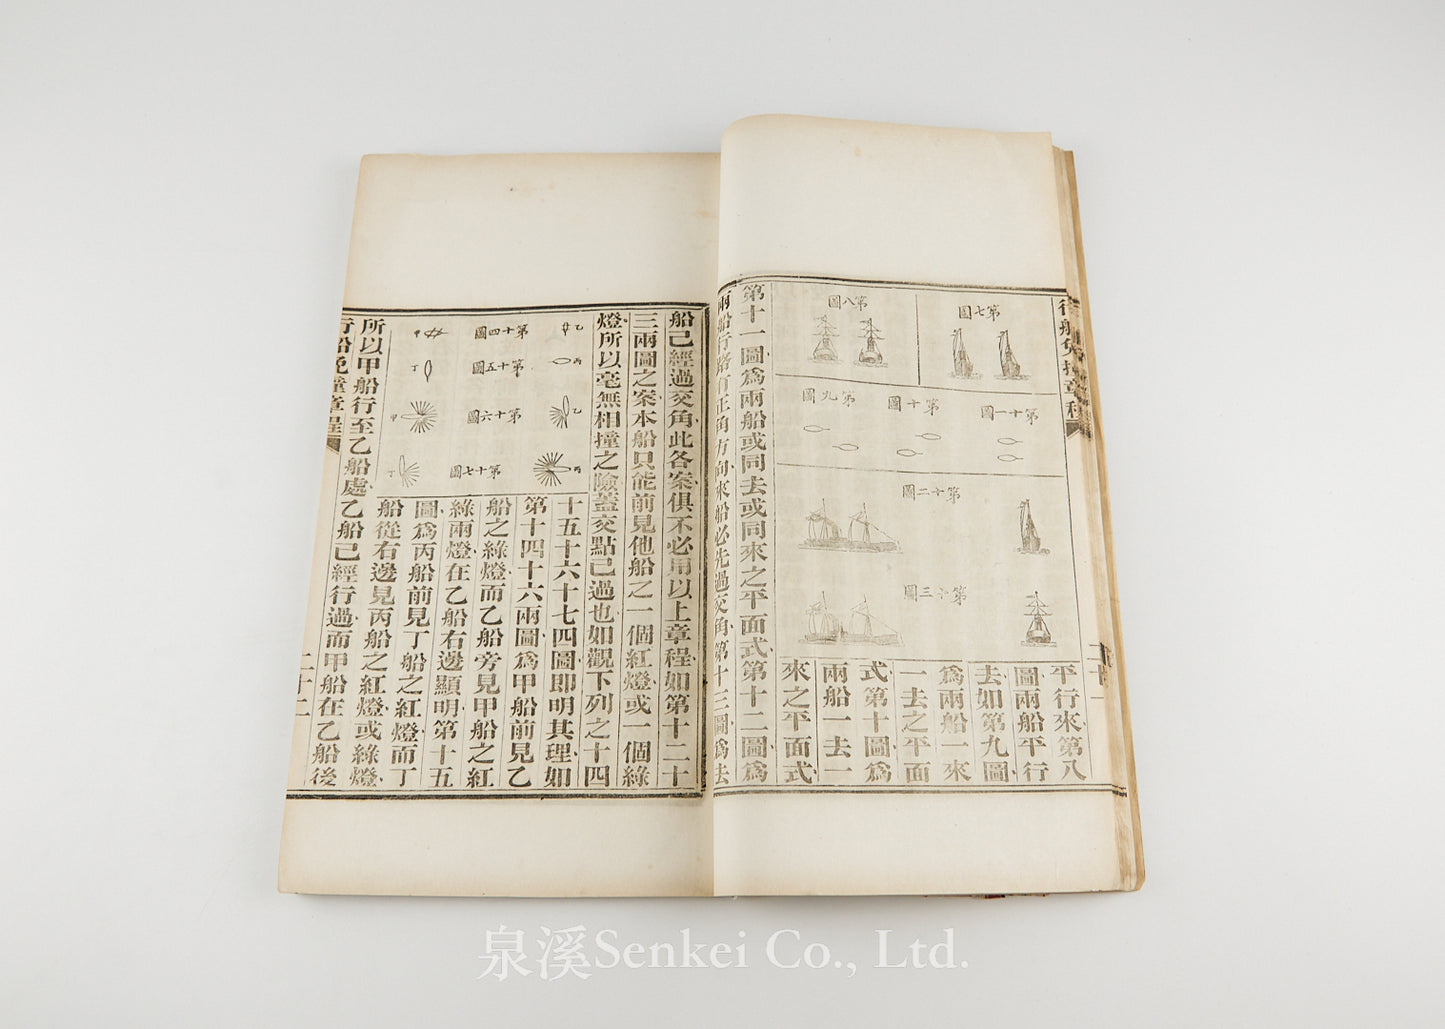 行船免撞章程
第七圖
第八圖
第九圖
第十圖
第十一圖
第十二圖
第十三圖
平行來第八
圖兩船平行
去如第九圖
爲兩船一來
一去之平面
式第十圖爲
兩船一去一
來之平面式
第十一圖爲兩船或同去或同來之平面式第十二圖爲
兩船行路有正角方向來船必先過交角第十三圖爲去
船已經過交角此各案俱不必用以上章程如第十二十
三兩圖之案本船只能前見他船之一個紅燈或一個綠
燈所以毫無相撞之險蓋交點已過也如觀下列之十四
第十四圖
甲
乙
第十五圖
丁
丙
第十六圖
甲
乙
第十七圖
丁
丙
十五十六十七四圖即明其理如
第十四十六兩圖爲甲船前見乙
船之綠燈而乙船旁見甲船之紅
綠兩燈在乙船右邊顯明第十五
圖爲丙船前見丁船之紅燈而丁
船從右邊見丙船之紅燈或綠燈
所以甲船行至乙船處乙船已經行過而甲船在乙船後
行船免撞章程
二十二
泉溪Senkei Co., Ltd.